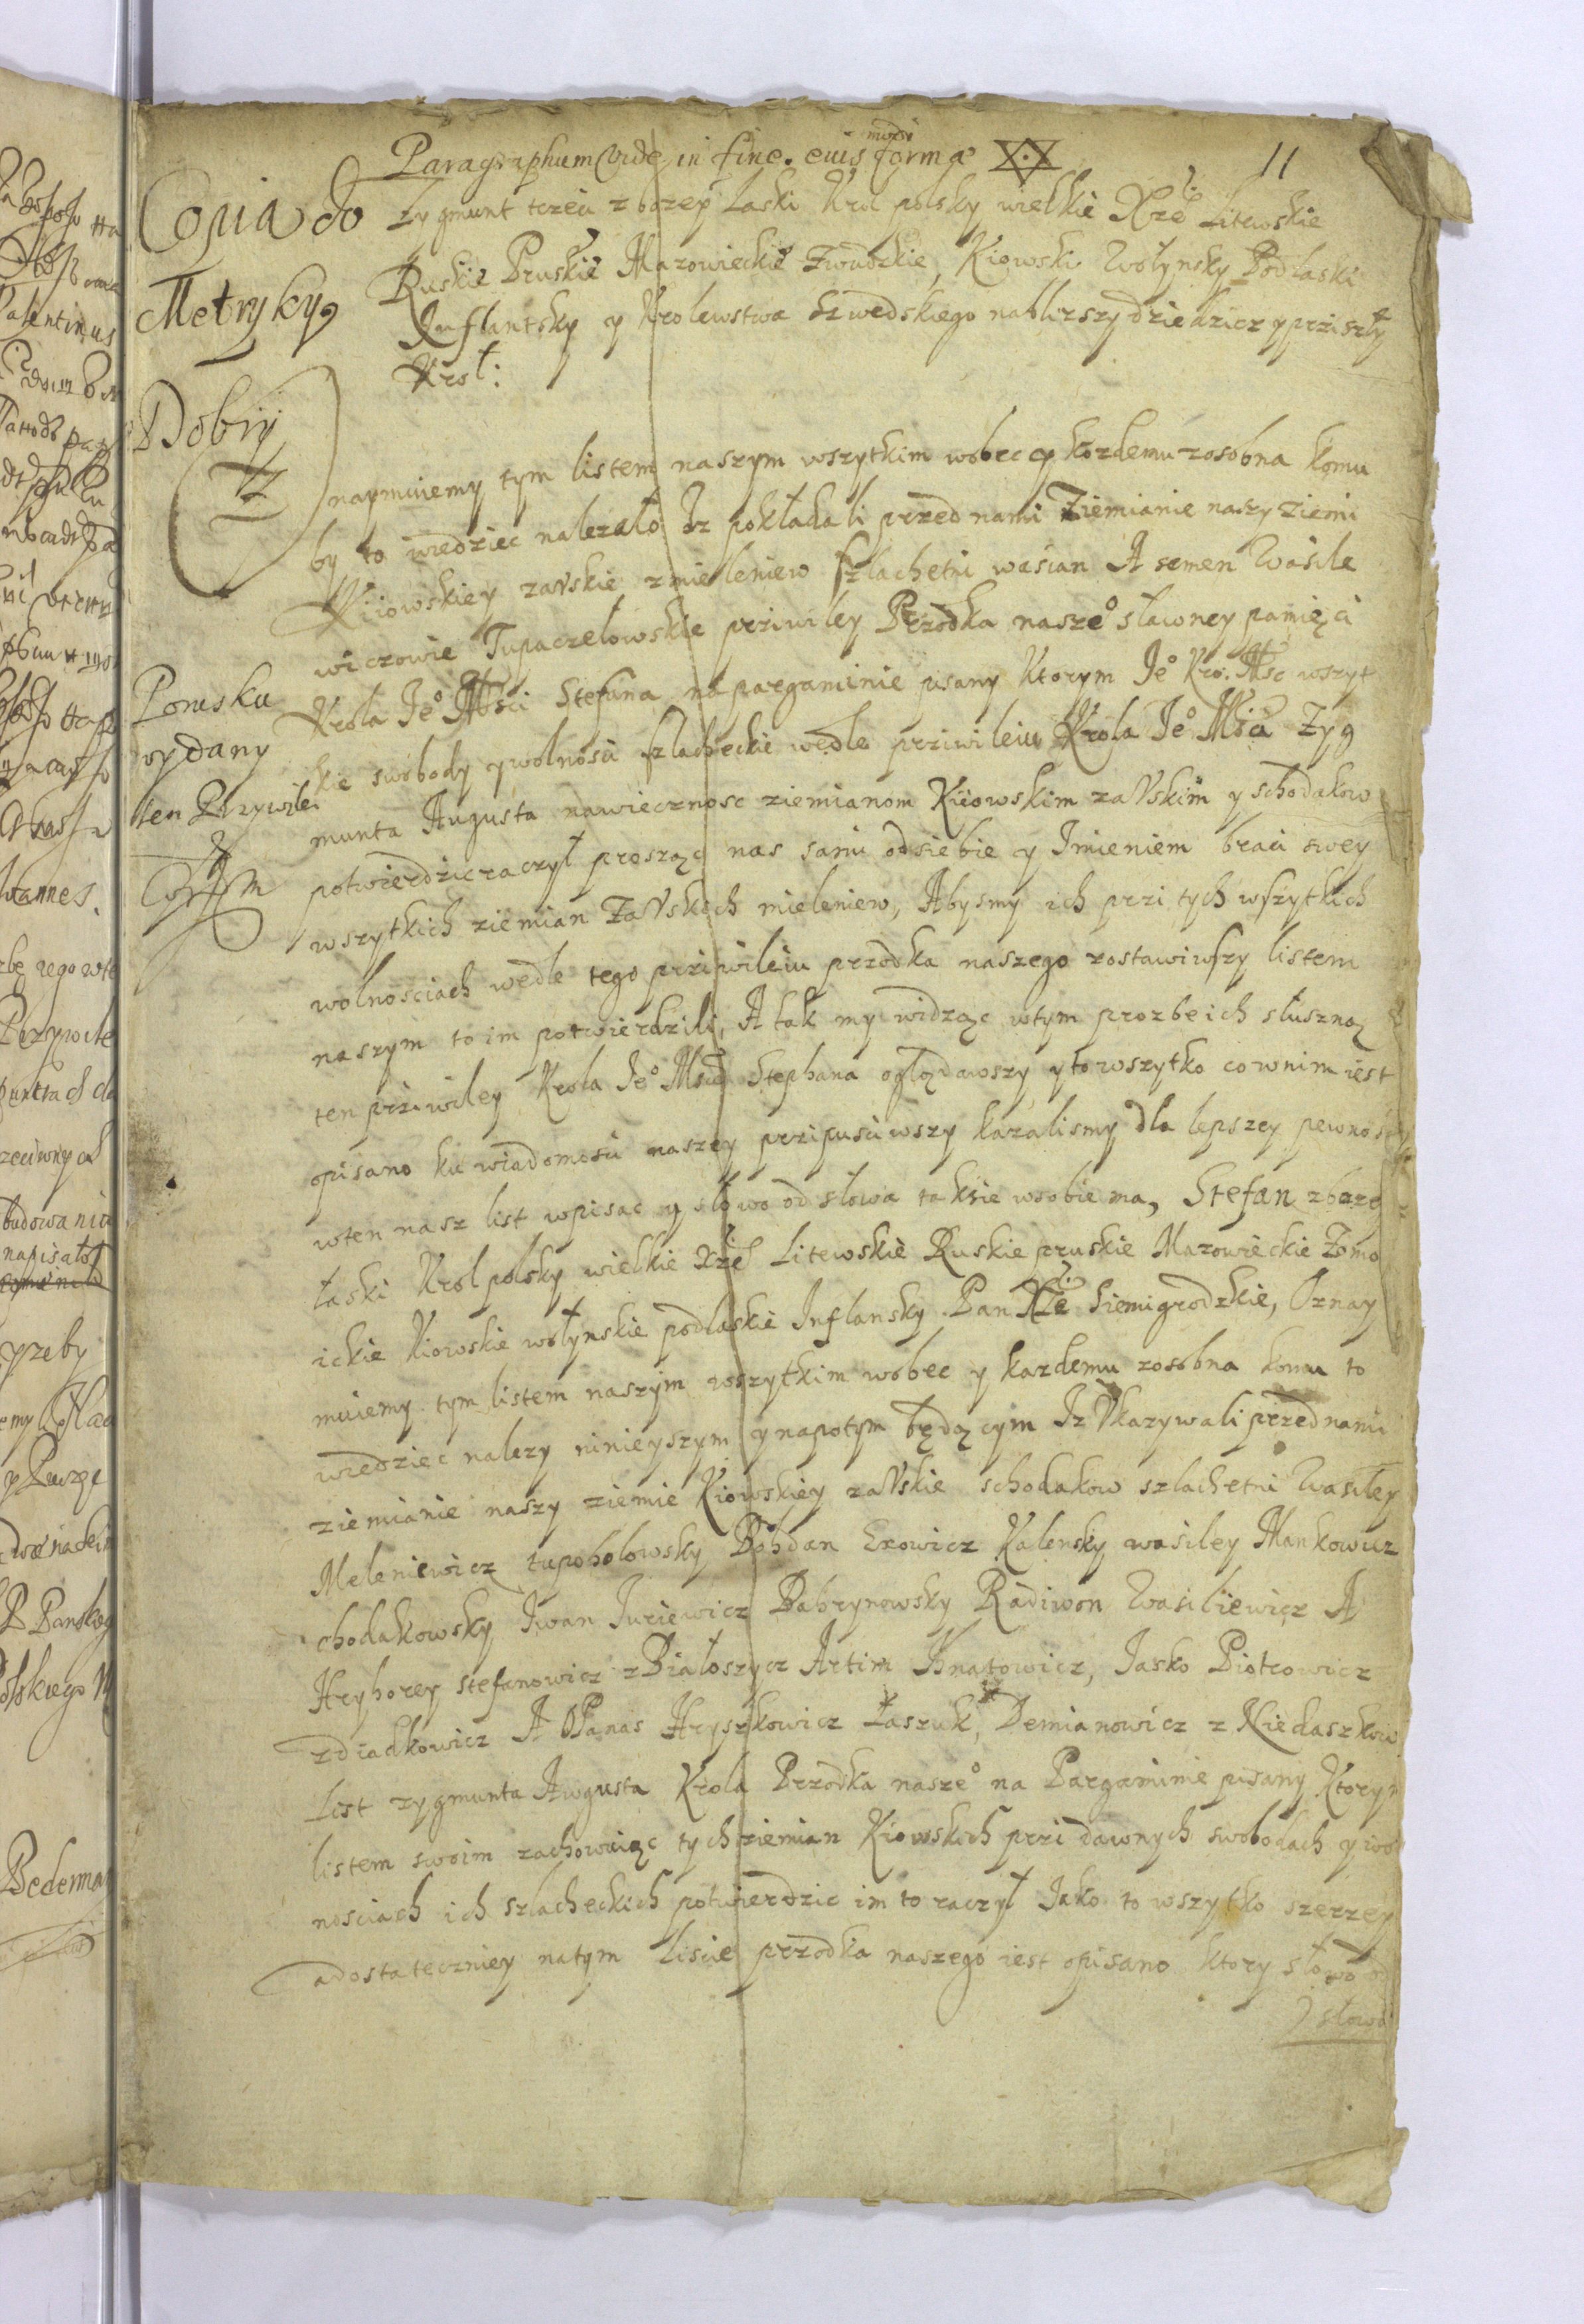 Paragraphum Vide in fine. euis modi forma
11
Copia do
Metryky
Zygmunt trzeci z bozey Laski Krol polsky wielkie Xżę Litewskie
Ruskie Pruskie Mazowieckie Zmudzkie, Kiowski Wołynsky Podlaski
Inflantsky y Krolewstwa Szwedskiego nablizszy dziedzicz y prziszły
Krol:
Dobry
Oznaymuiemy tym listem naszym wszytkim wobec y kozdemu zosobna komu
by to wiedziec nalezało Iz pokładali przed nami Ziemianie naszy Ziemi
Kiiowskiey zaVskie z mieleniew szlachetni wasian A semen Wasile
wiczowie Tupaczełowskie prziwiley Przodka nasze° sławney pamięci
Porusku
wydany
ten Przywilei
Krola Ie° Mści Stefana na pargaminie pisany Ktorym Ie° Kro: Mśc wszyt
kie swobody y wolnosci szlacheckie wedle prziwileiu Krola Ie° Mści Zyg
munta Augusta nawiecznosc ziemianom Kiiowskim zaVskim y schodakow
potwierdzic raczył prosząc nas sami od siebie y Imieniem braci swey
wszytkich ziemian ZaVskich mieleniew, Abysmy ich przi tych wszytkich
wolnosciach wedle tego prziwileiu przodka naszego zostawiwszy listem
naszym to im potwierdzili, A tak my widząc wtym prozbe ich słuszną
ten prziwiley Krola Ie° Mści Stephana oglądawszy y to wszytko co wnim iest
opisano ku wiadomosci naszey przipusciwszy kazalismy dla lepszey pewnosc
wten nasz list wpisac y słowo od słowa tak sie wsobie ma, Stefan z bozey
łaski Krol polsky wielkie Xżę Litewskie Ruskie pruskie Mazowieckie Zomo
ickie Kiowskie wołynskie podlaskie Inflansky Pan Xżę Siemigrodzkie, Oznay
muiemy tym listem naszym wszytkim wobec y kazdemu zosobna komu to
wiedziec nalezy ninieyszym y napotym będącym Iz Vkazywali przed nami
ziemianie naszy ziemie Kiowskiey zaVskie schodakow szlachetni Wasiley
Meleniewicz tupoholowsky Bohdan Exowicz Kalensky wasiley Mankowicz
chodakowsky Iwan Iuriewicz Dabrynowsky Radiwon Wasiliewicz A
Hryhorey stefanowicz z Białoszycz Artim Ihnatowicz, Iasko Piotrowicz
z diadkowicz A OPanas Hryszkowicz Łaszuk, Demianowicz z Niedaszkow
List zygmunta Awgusta Krola Przodka nasze° na Pargaminie pisany Ktorym
listem swoim zachowuiąc tych ziemian Kiowskich przi dawnych swobodach y wo
nosciach ich szlacheckich potwierdzic im to raczył Iako to wszytko szerzey
a dostateczniey natym liscie przodka naszego iest opisano ktory słowo od
słowa